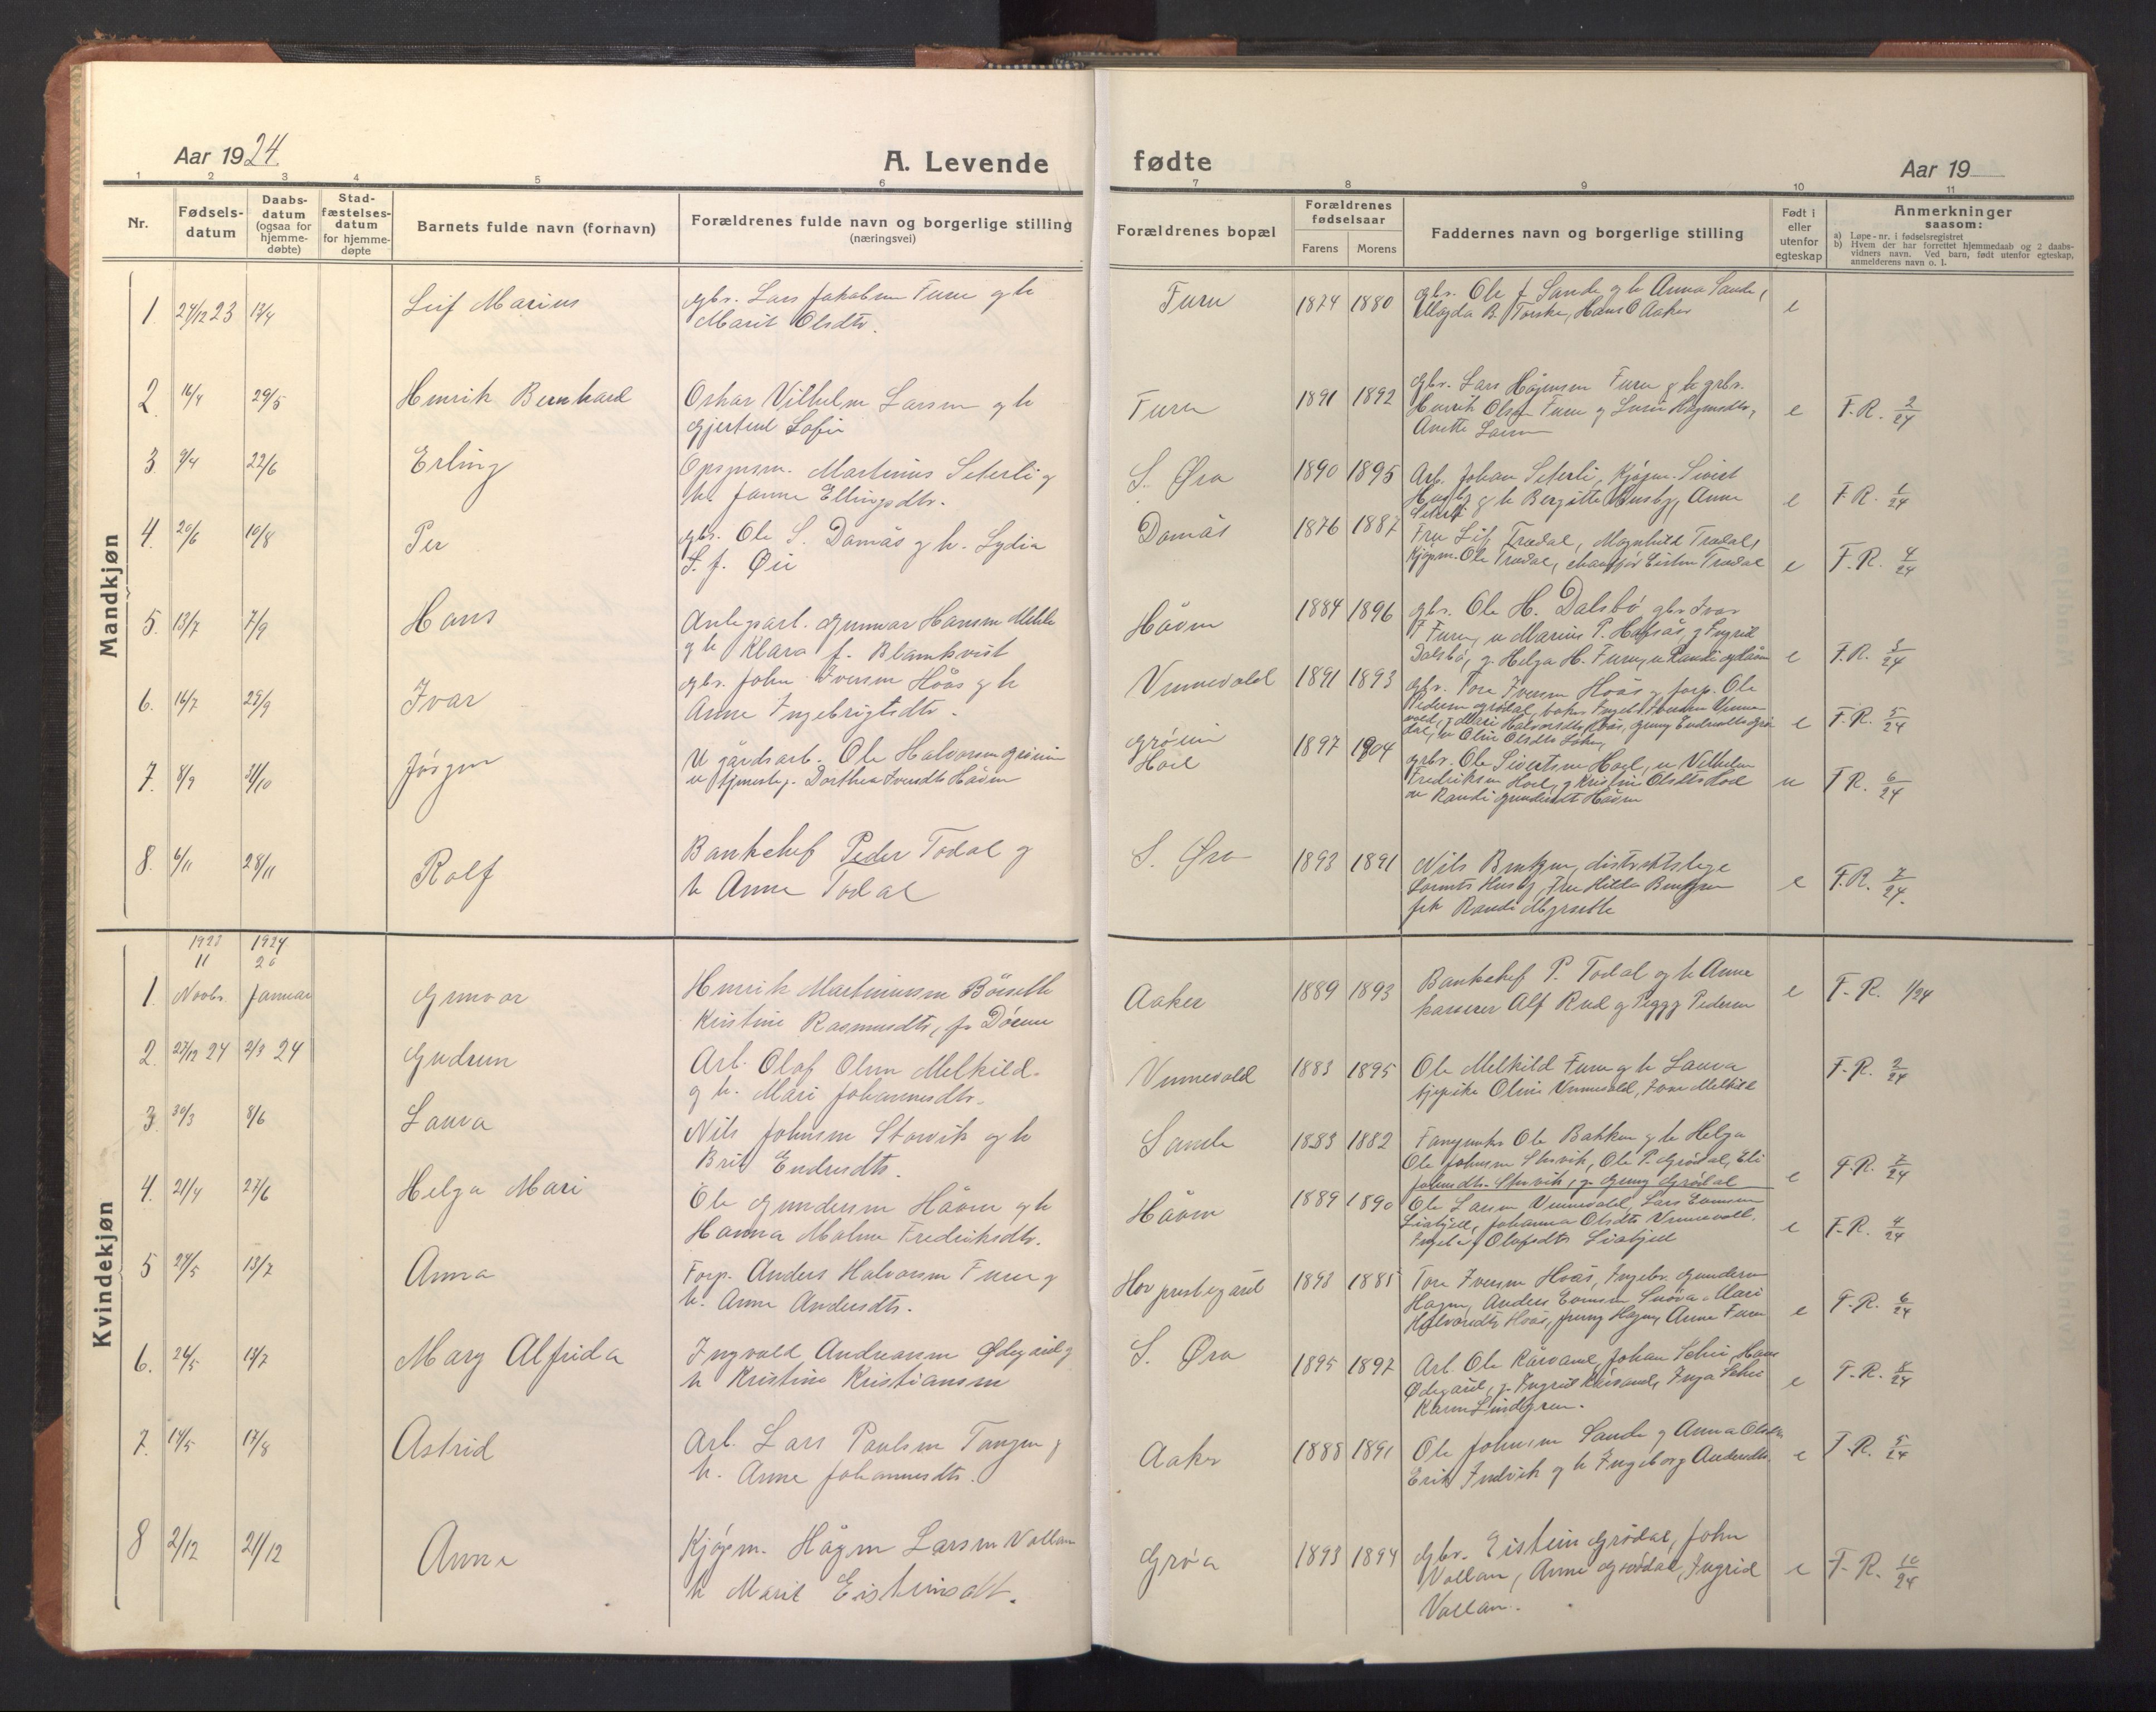 Aar 1924
A. Levende
fødte
Aar 19
1 2 3 4 5 6 7 8 9 10 11
Nr.
Fødsels-
datum
Daabs-
datum
(ogsaa for
hjemme-
døbte)
Stad-
fæstelses-
datum
for hjemme-
døpte
Barnets fulde navn (fornavn)
Forældrenes fulde navn og borgerlige stilling
(næringsvei)
Forældrenes bopæl
Forældrenes
fødselsaar
Farens Morens
Faddernes navn og borgerlige stilling
Født i
eller
utenfor
egteskap
Anmerkninger
saasom:
a) Løpe-nr. i fødselsregistret
b) Hvem der har forrettet hjemmedaab og 2 daabs-
vidners navn. Ved barn, født utenfor egteskap,
anmelderens navn o. l.
Mandkjøn
1. 24/12 23 13/4 Leif Marius gbr. Lars Jakobsen Furu og h
Marit Olsdtr.
Furu 1874 1880 gbr. Ole J Sande og h Anna Sande,
Magda B. Torske, Hans O Aaker e
2. 16/4 29/5 Henrik Bernhard Oskar Vilhelm Larsen og h
Gjertine Sofie
Furu 1891 1892 gbr. Lars Hågensen Furu og h gbr.
Henrik Olsen Furu og
Anette Larsen e F.R. 2/24
3 9/4 22/6 Erling Martinus Seterli og
h. Janna Ellingsdtr.
S. Øra 1890 1895 Arb. Johan Seterli, Kjøpm. Sivert
Husby og h Bergitte Husby, Anne
Seterli e F.R. 1/24
4. 20/6 10/8 Per gbr. Ole S. Damås og h. Lydia
S. f. Øie
Damås 1876 1887 Fru Lif Trædal, Magnhild Trædal,
Kjøpm. Ole Trædal, Eistein Trædal e F.R. 4/24
5. 13/7 7/9 Hans Anlegsarb. Gunnar Hansen Mehle
og h Klara f. Blamkvist
Håven 1884 1896 gbr. Ole H. Dalsbø, gbr Ivar
Furu, u Marius P. Hafsås, g Ingrid
Dalsbø, g. Helga H. Furu, u Randi Håven e F.R. 3/24
6. 16/7 29/9 Ivar gbr. John Iversen Hoås og h
Anne Ingebrigtsdtr.
Vinnevold 1891 1893 gbr. Tore Iversen Hoås, forp. Ole
Pedersen Grødal,
Mari Halvorsdtr Hoås,
Oline Olsdtr e F.R. 5/24
7. 8/9 31/10 Jørgen U gårdsarb. Ole Halvorsen Grøvin
u tjenestep. Dorthea Iversdtr Håven
Grøvin
Hoel 1897 1904 gbr. Ole Sivertsen Hoel, u Vilhelm
Fredriksen Hoel, g Kristine Olsdtr Hoel
u Randi Gundersdt Håven u F.R. 6/24
8. 6/11 28/11 Rolf Bankchef Peder Todal og
h Anne Todal
S. Øra 1893 1891 Nils Bentzen, distriktslege
Husby, Fru Hilda Bentzen
frk Randi e F.R. 7/24.
Kvindekjøn
1923 1924
11 20
1. Novbr. Januar Gunvor Henrik Martinussen Bøesetle
Kristine Rasmusdtr, f. Dørum
Aaker 1889 1893 Bankchef P. Todal og h Anne
kasserer Alf Rud og Peggy Pedersen e F.R. 1/24
2. 27/12 24 2/3 24 Gudrun Arb. Olaf Olsen Melkild
og h. Mari Johannesdtr.
Vinnevold 1883 1895 Ole Melkild Furu og h Laura
Oline Vinnevold, Tore Melkild F.R. 2/24
3. 30/3 8/6 Laura Nils Johnsen Storvik og h
Brit Endresdtr.
Sande 1883 1882 Ole Bakken og h Helga
Ole Johnsen Storvik, Ole P. Grødal, Eli
Johnsdtr. Storvik, g. Gury Grødal e F.R. 7/24
4. 21/4 27/6 Helga Mari Ole Gundersen Håven og h
Hanna Malene Fredriksdtr.
Håven 1889 1890 Ole Larsen Vinnevold, Lars Evensen
Liabjell, Johanna Olsdtr Vinnevold,
Olafsdtr Liabjell e F.R. 4/24
5 24/5 13/7 Anna Forp. Anders Halvorsen Furu og
h. Anne Andersdtr.
Hov prestegård 1893 1885 Tore Iversen Hoås, Ingebr. Gundersen
Hagen, Anders Evensen Snøva, Mari
Halvorsdtr Hoås, Gury Hagen, Anne Furu e F.R. 6/24
6. 24/5 13/7 Mary Alfrida Ingvald Andreassen Ødegård og
h Kristine Kristiansen
S. Øra 1895 1897 Arb. Ole Rårvand, Johan Schei, Hans
Ødegård, g. Ingrid Inga Schei
Karen Lindgren. e F.R. 8/24
7. 14/5 17/8 Astrid Arb. Lars Paulsen Tangen og
h. Anne Johannesdtr.
Aaker 1888 1891 Ole Johnsen Sande og Anna Olsdtr
Erik Indvik og h Ingeborg Andersdtr. e F.R. 5/24
8 2/12 21/12 Anne Kjøpm. Hågen Larsen Vollan
h Marit Eisteinsdt.
Grøa 1893 1894 gbr. Eistein Grødal, John
Vollan, Anne Grødal, Ingrid
Vollan. e F.R. 10/24